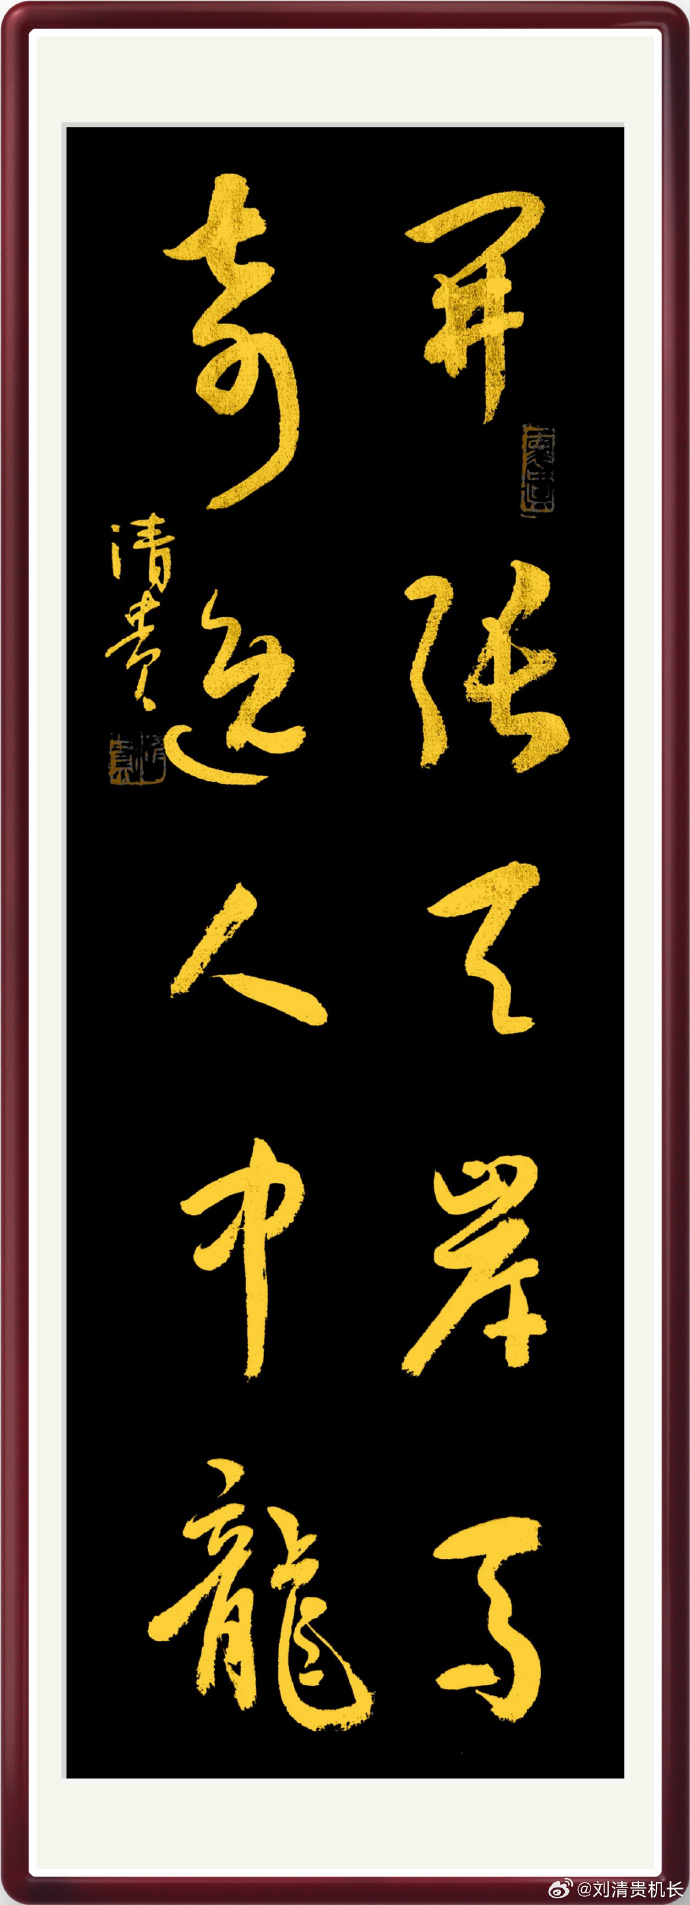 開張天岸馬
奇逸人中龍
清贵
@刘清贵机长